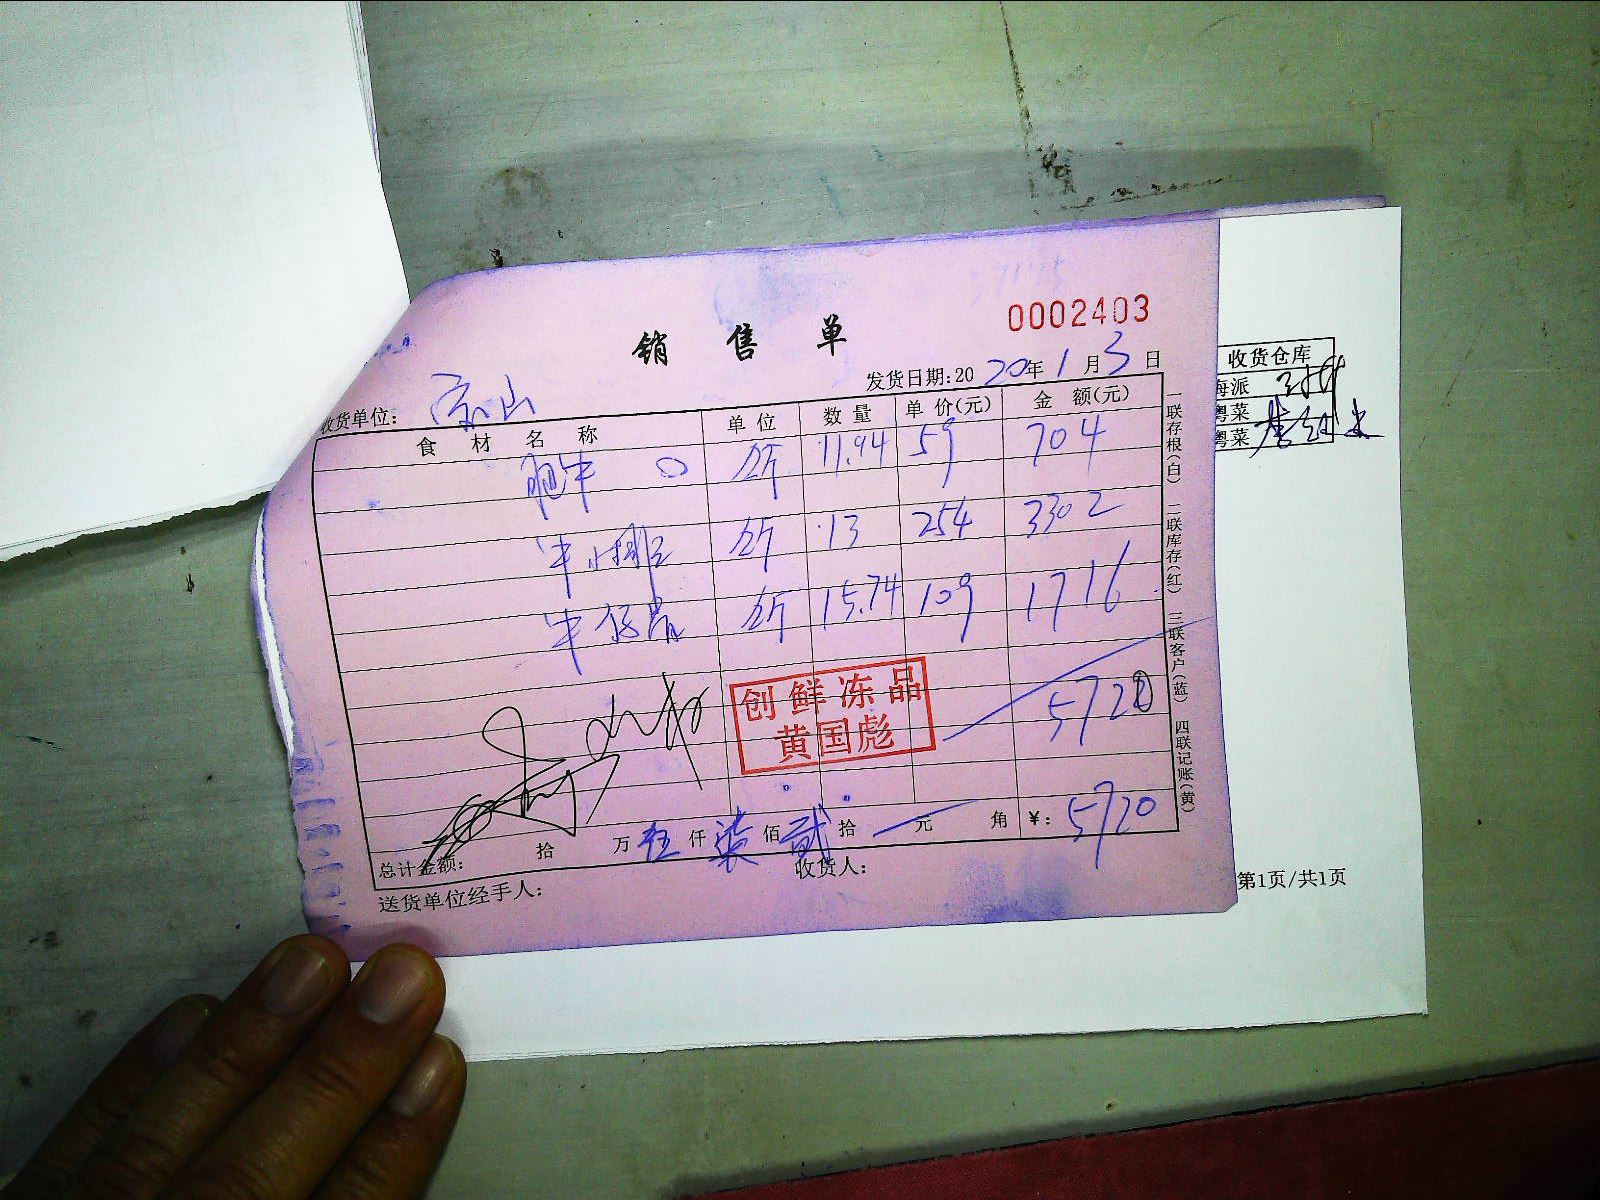 0002403
销售单
发货日期:2020年1月3日
收货单位:
食材名称 单位 数量 单价(元) 金额(元)
肥牛 斤 11.94 59 704
牛小排 斤 13 254 3302
牛 斤 15.74 109 1716
5720
创鲜冻品
黄国彪
总计金额: 拾 万 伍 仟 柒 佰 贰 拾 元 角 ¥: 5720
送货单位经手人: 收货人:
一联存根(白) 二联库存(红) 三联客户(蓝) 四联记账(黄)
收货仓库
海派
粤菜
粤菜
第1页/共1页